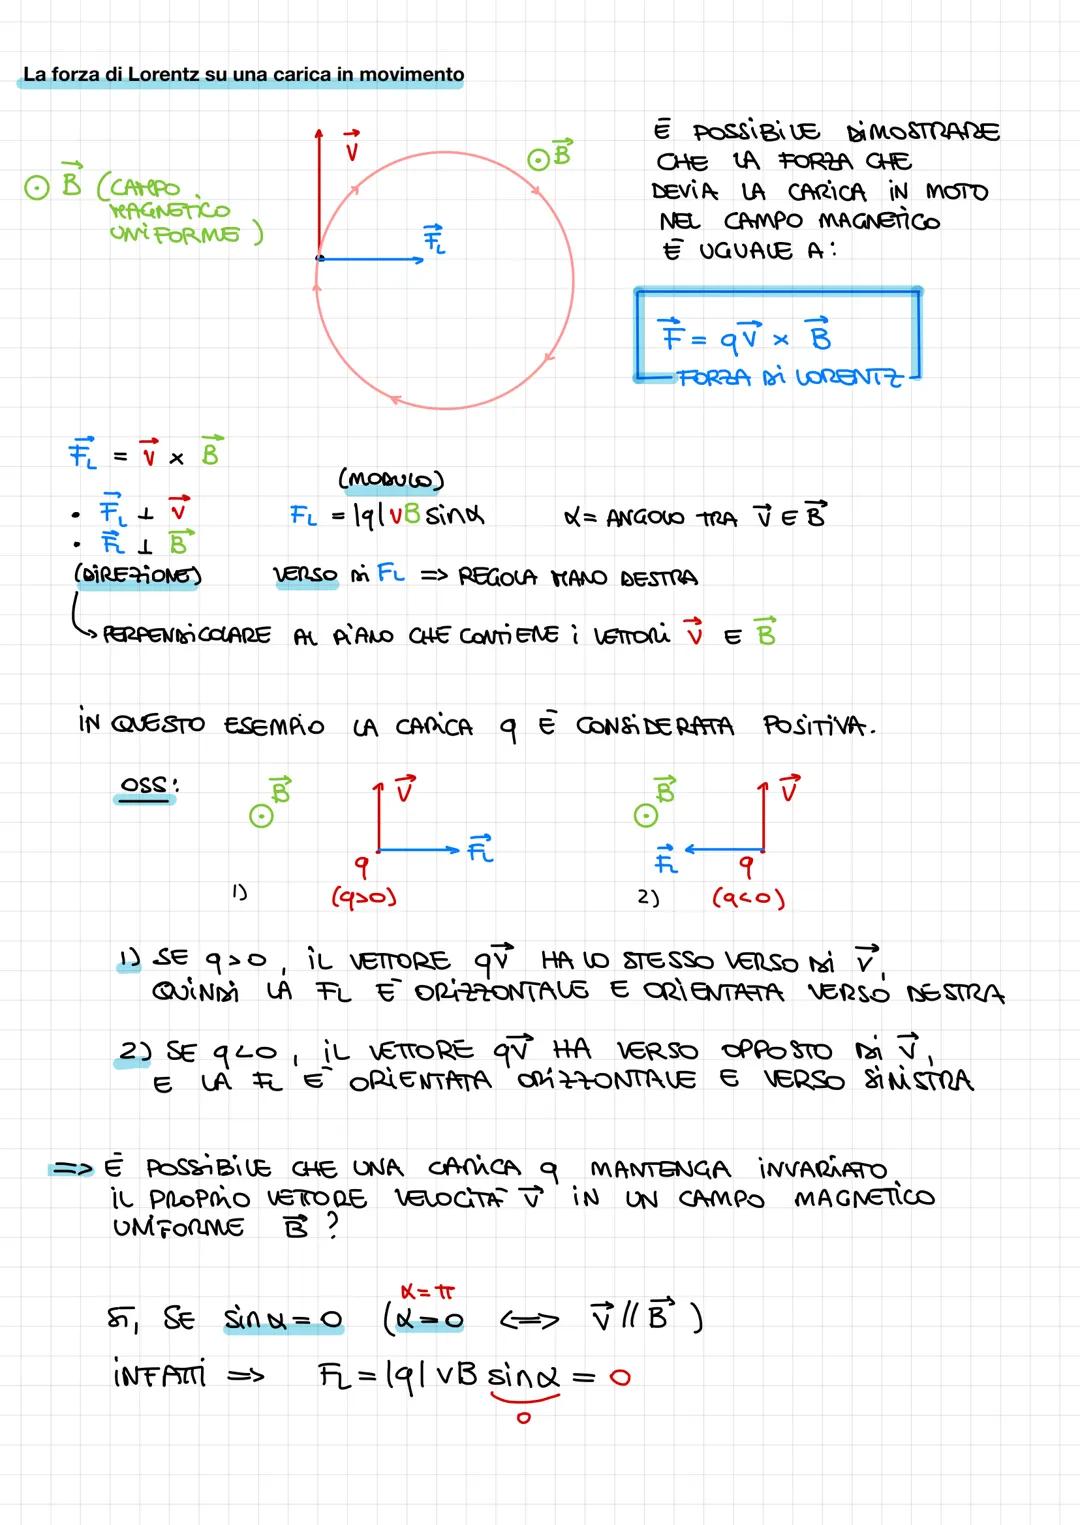 La forza di Lorentz su una carica in movimento
V
B
B (CAMPO MAGNETICO UNIFORME)
FL
È POSSIBILE DIMOSTRARE
CHE LA FORZA CHE
DEVIA LA CARICA IN MOTO
NEL CAMPO MAGNETICO
È UGUALE A:
F = qV × B
FORZA DI LORENTZ
FL = V × B
• FL ⊥ V
• FL ⊥ B
(DIREZIONE)
(MODULO)
FL = |q| VB sinα
α = ANGOLO TRA V E B
VERSO DI FL => REGOLA MANO DESTRA
↳ PERPENDICOLARE AL PIANO CHE CONTIENE i VETTORI V E B
IN QUESTO ESEMPIO LA CARICA q È CONSIDERATA POSITIVA.
OSS:
B
V
FL
q
1) (q>0)
B
V
FL
q
2) (q<0)
1) SE q>0, IL VETTORE qV HA LO STESSO VERSO DI V,
QUINDI LA FL È ORIZZONTALE E ORIENTATA VERSO DESTRA
2) SE q<0, IL VETTORE qV HA VERSO OPPOSTO DI V,
E LA FL È ORIENTATA ORIZZONTALE E VERSO SINISTRA
=> È POSSIBILE CHE UNA CARICA q MANTENGA INVARIATO
IL PROPRIO VETTORE VELOCITÀ V IN UN CAMPO MAGNETICO
UNIFORME B ?
α = π
SÌ, SE sinα = 0 (α = 0 <=> V // B)
INFATTI => FL = |q| VB sinα = 0
0